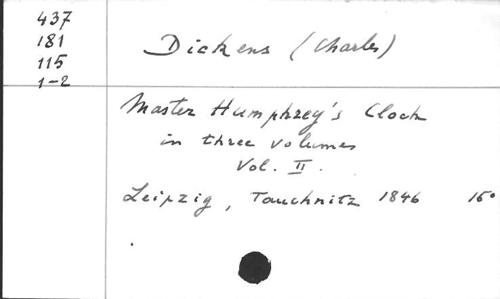 437
181
115
1-2
Dickens (Charles)
Master Humphrey's Clock
in three volumes
Vol. II.
Leipzig, Tauchnitz 1846 16°